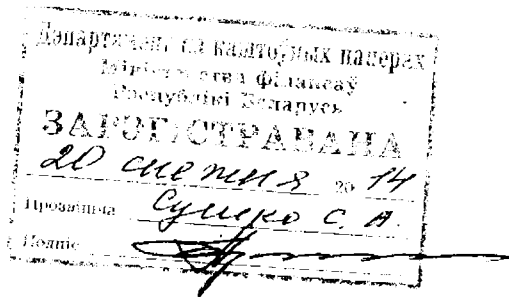 Дэпартамент па каштоўных паперах
Міністэрства фінансаў
Рэспублікі Беларусь
ЗАРЭГІСТРАВАНА
20 снежня 2014
Прозвішча Сушко С. А.
Подпіс